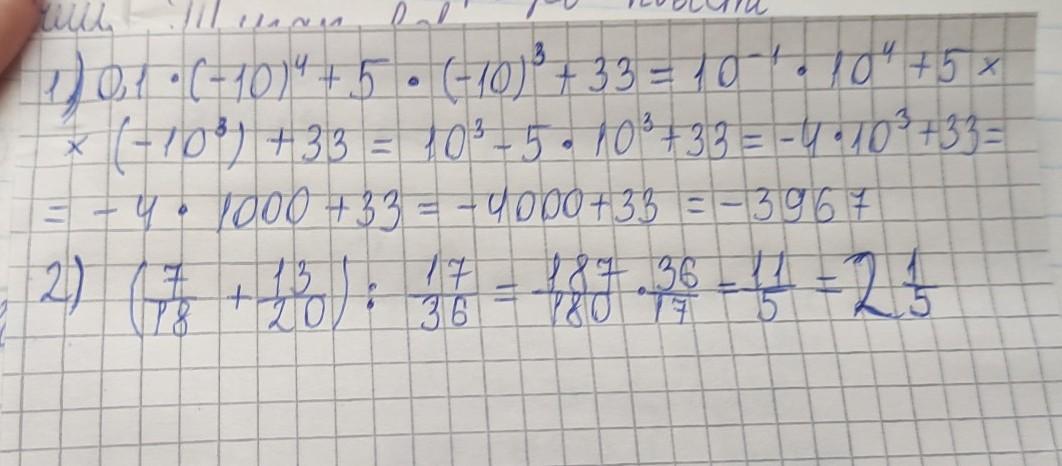 1) 0,1 · (-10)⁴ + 5 · (-10)³ + 33 = 10⁻¹ · 10⁴ + 5 ×
× (-10³) + 33 = 10³ - 5 · 10³ + 33 = -4 · 10³ + 33 =
= -4 · 1000 + 33 = -4000 + 33 = -3967
2) (7/18 + 13/20) : 17/36 = 187/180 · 36/17 = 11/5 = 2 1/5